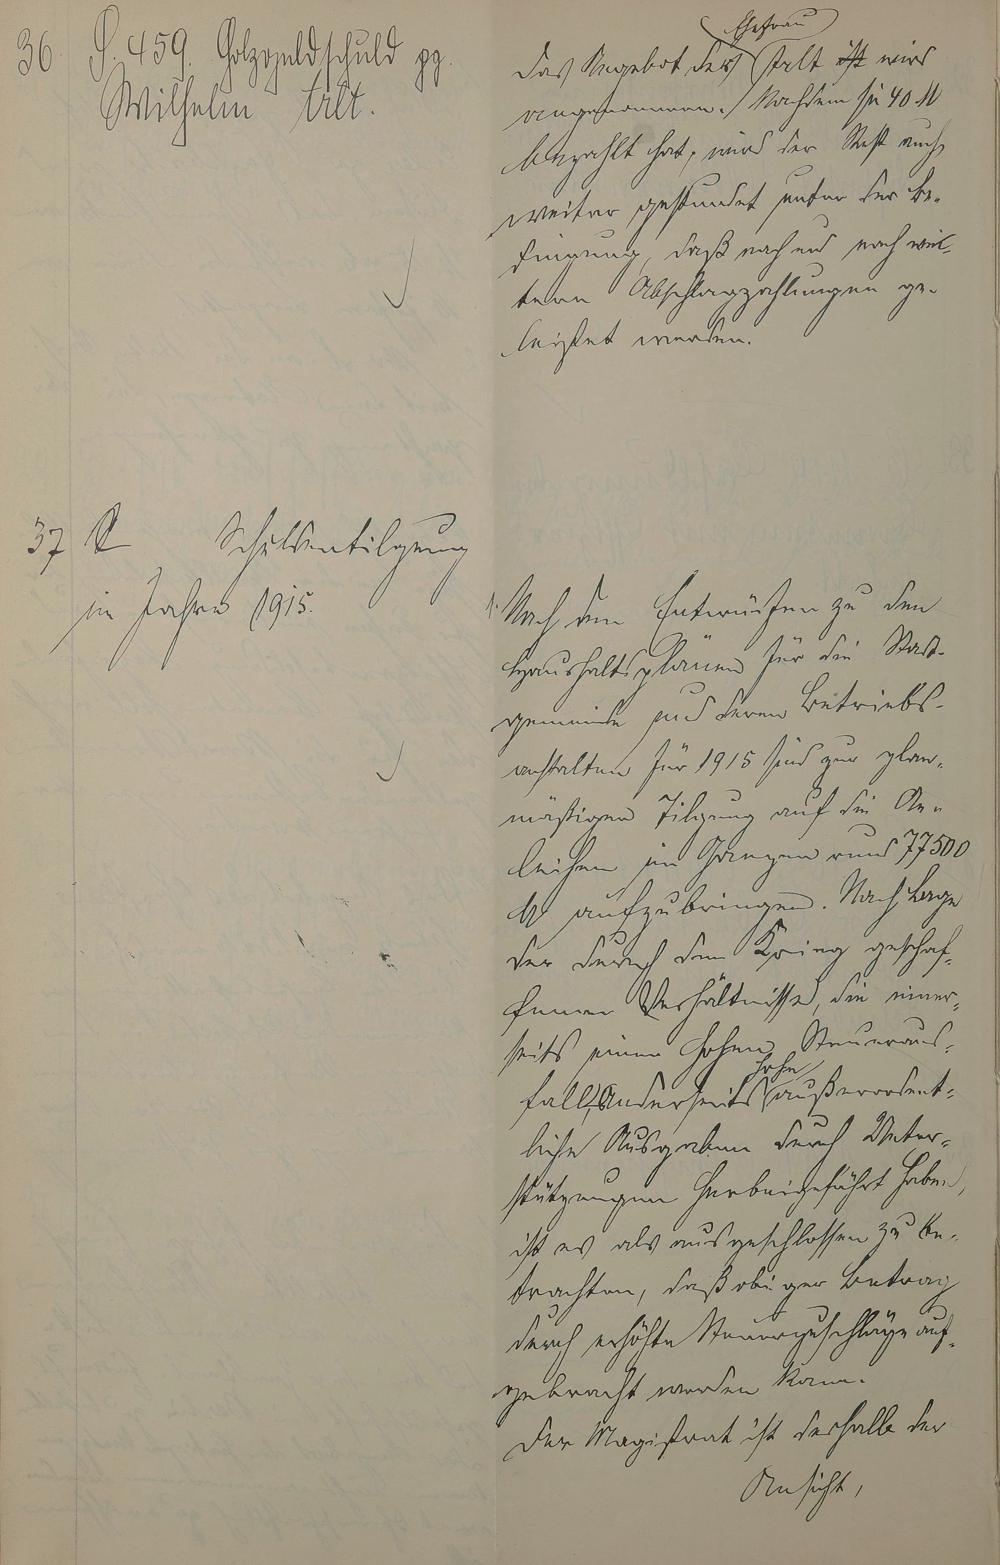 36. S. 459. Holzgeldschuld pp.
Wilhelm Alt.
Ehefrau
Das Angebot der Alt ist wird
angenommen. Nachdem sie 40 M
bezahlt hat, wird der Rest auch
weiter gestundet unter der Be-
dingung, daß nach und nach wei-
tern Abschlagzahlungen ge-
leistet werden.
37 Schuldentilgung
im Jahre 1915.
1. Nach den Entwürfen zu den
Haushaltsplänen für die Stadt-
gemeinde und deren Betriebs-
anstalten für 1915 sind zur plan-
mäßigen Tilgung auf die An-
leihen im Ganzen rund 77500
M aufzubringen. Nach Lage
der durch den Krieg geschaf-
fenen Verhältnisse, die einer-
seits einen hohen Steueraus-
hohe
fall, Anderseits außerordent-
liche Ausgaben durch Unter-
stützungen herbeigeführt haben,
ist es als ausgeschlossen zu be-
trachten, daß obiger Betrag
durch erhöhte Steuerzuschläge auf-
gebracht werden kann.
Der Magistrat ist deshalb der
Ansicht,